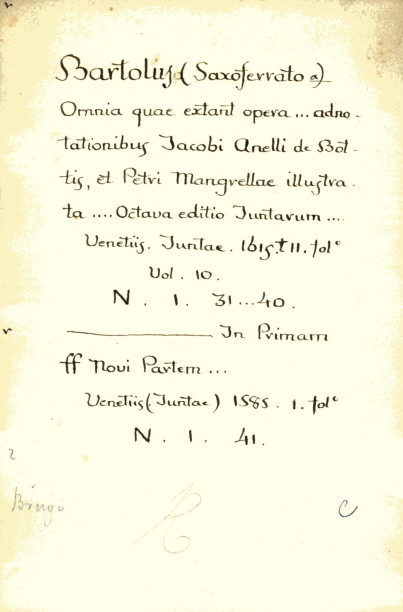 Bartolus (Saxoferrato a)
Omnia quae extant opera ... adno-
tationibus Jacobi Anelli de Bot-
tis, et Petri Mangrellae illustra-
ta .... Octava editio Juntarum ....
Venetiis. Juntae. 1615. t 11. folº
Vol. 10.
N. 1. 31...40.
In Primam
ff Novi Partem ...
Venetiis (Juntae) 1585. 1. folº
N. 1. 41.
C